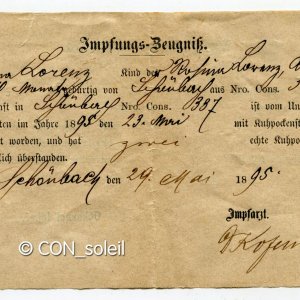 Impfungs-Zeugniß.
Lorenz Kind der Rosina Lorenz,
gebürtig von Schönbach aus Nro. Cons.
in Schönbach Nro. Cons. 387 ist vom Un
ten im Jahre 1895 den 23. Mai mit Kuhpockenst
t worden, und hat zwei echte Kuhpocke
überstanden.
Schönbach den 29. Mai 1895.
Impfarzt.
© CON_soleil